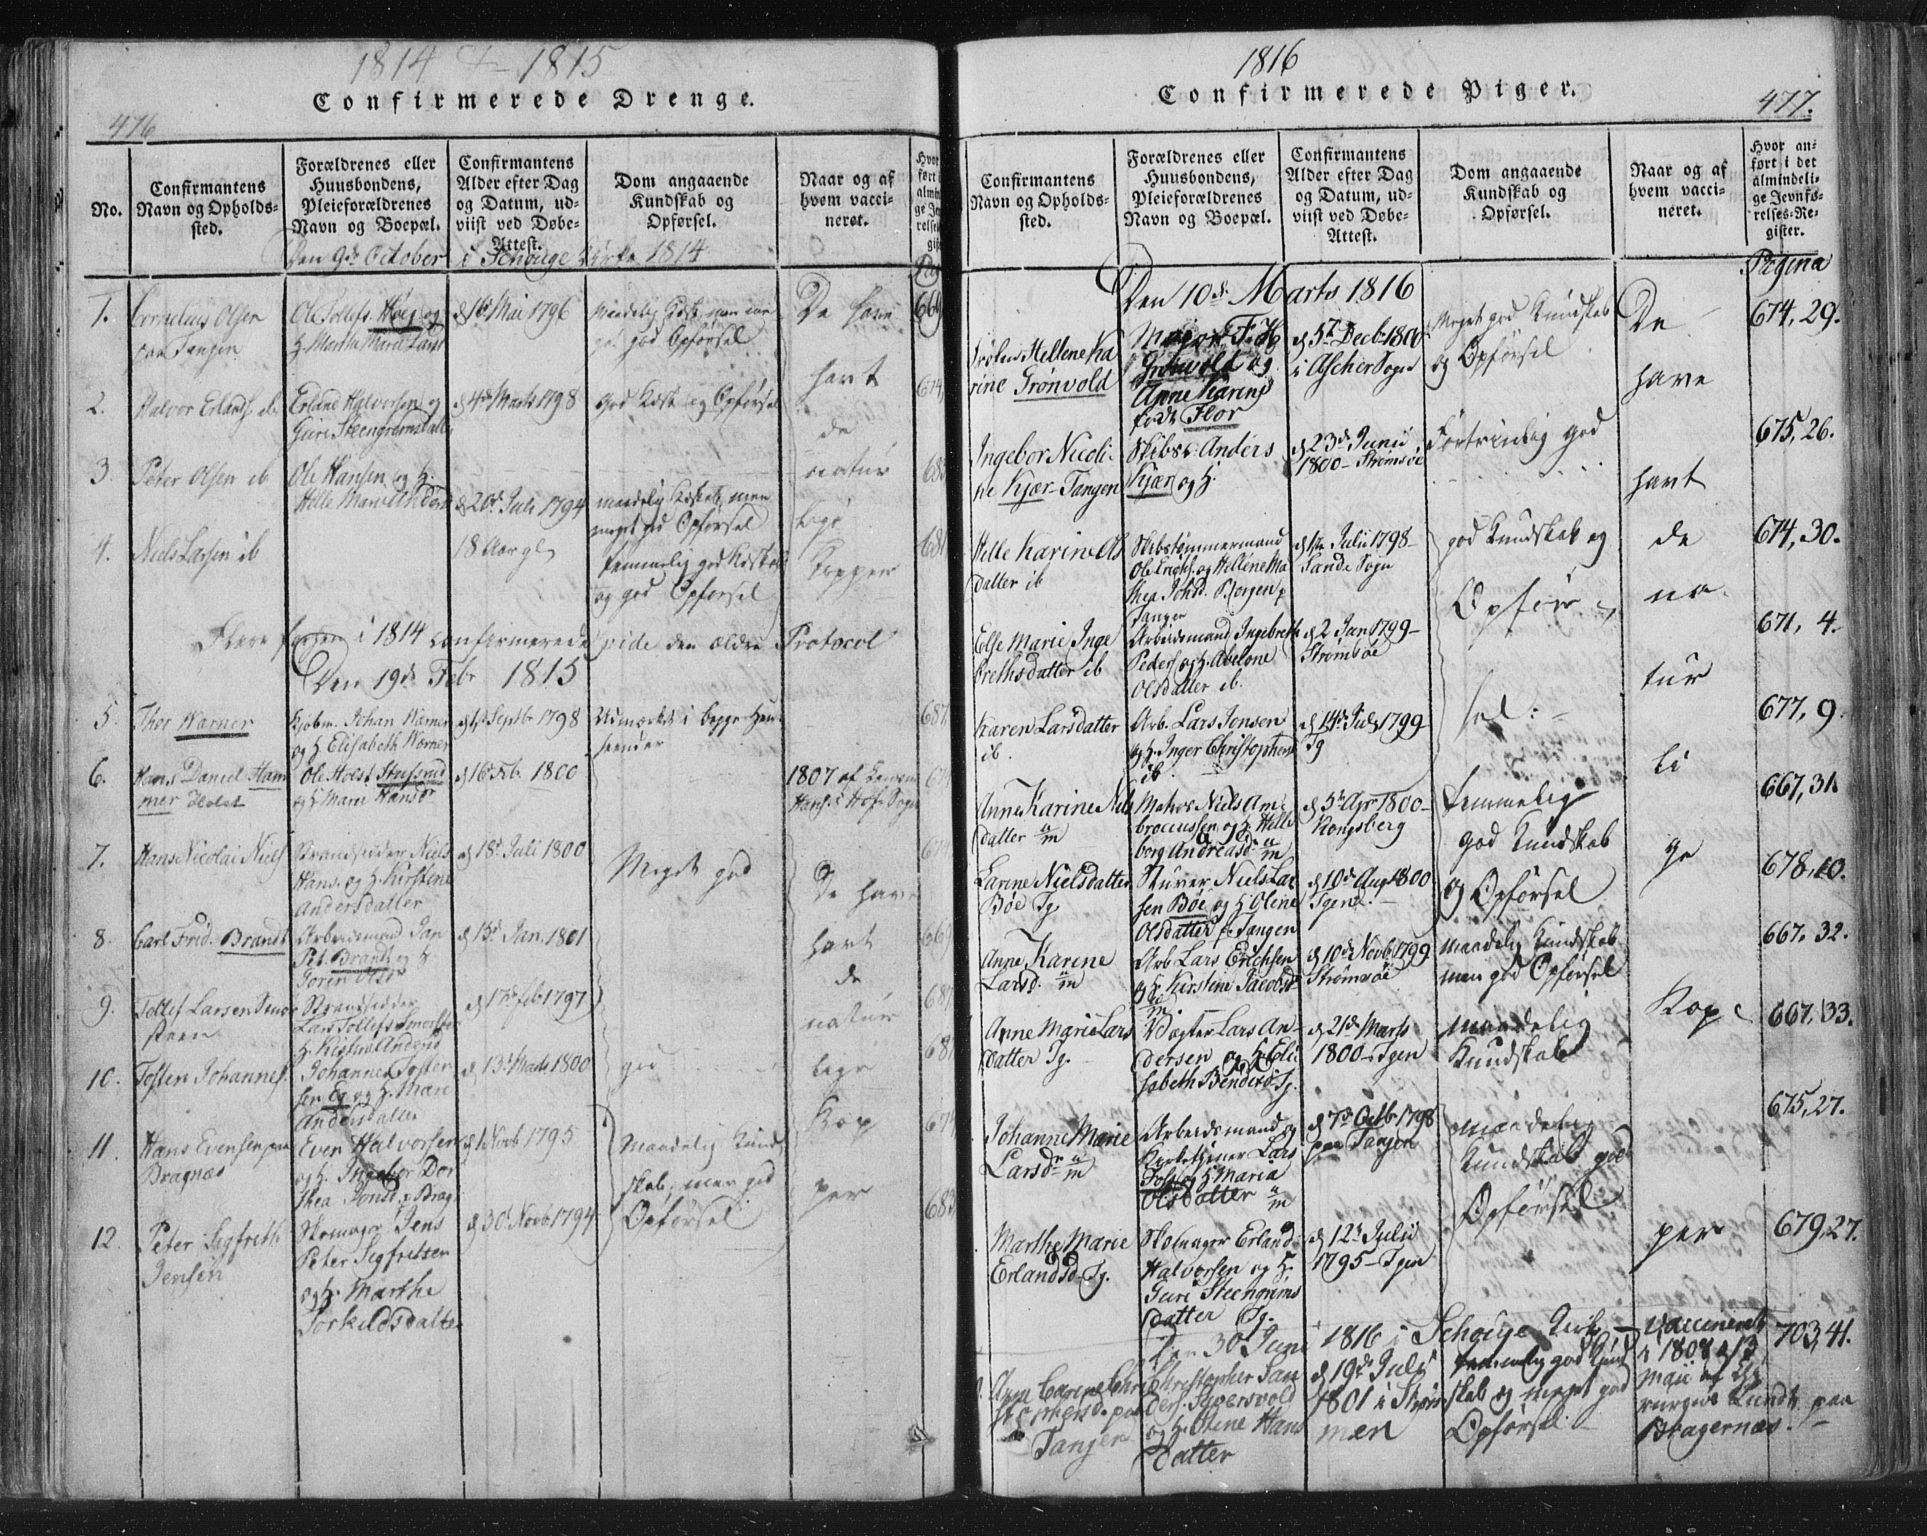 1814 & 1815
Confirmerede Drenge.
476
No.
Confirmantens
Navn og Opholds-
sted.
Forældrenes eller
Huusbondens,
Pleieforældrenes
Navn og Boepæl.
Confirmantens
Alder efter Dag
og Datum, ud-
viist ved Døbe-
Attest.
Dom angaaende
Kundskab og
Opførsel.
Naar og af
hvem vacci-
neret.
Den 9de October i Schouge Kirke 1814
1.
Cornelius Olsen
paa Tangen
Ole Tollefs. Høeg og
d 16 Mai 1796
god Opførsel
De have
2.
Halvor Erlands. ib
Erland Halvorsen og
Guri Steengrimsdatter
d 4de Marts 1798
God Kdsk og Opførsel
havt
de
3.
Peter Olsen ib
Ole Hansen og H.
d 20de Juli 1794
maadelig Kdskab, men
meget god Opførsel
natur
lige
4.
Niels Larsen ib
18 Aar gl.
temmelig god Kdskab
og god Opførsel
Kopper
Flere i 1814 confirmerede vide den ældre Protocol
Den 19de Febr 1815
5
Thor Warner
Johan Warner
og H Elisabeth Worner
d 4de Septbr 1798
Udmærket i begge Hen-
seender
687
6.
Hans Daniel Ham
mer Holst
Ole Holst Stufsrud
og H Marie Hansd
d 16 Feb. 1800
1807 af
Hans i Hofs Sogn
7.
Hans Nicolai Niels
Strandsidder Niels
Hans. og H. Kirstine
Andersdatter
d 18d Juli 1800
Meget god
De have
8.
Carl Frid. Brandt
Arbeidsmand Jan
Pet. Brandt og H
Goren Olsd
d 15d Jan. 1801
havt
de
9.
Tollef Larsen Smør
steen
Strandsidder
Lars Tollefs Smørsten
H. Kirstin Andersd
d 17d Feb 1797
natur
10.
Tosten Johannes.
Johannes Toster
sen Eg og H. Mare
Andersdatter
d 13d Marts 1800
god
lige
11
Hans Evensen paa
Bragnæs
Even Halvorsen
og H. Ingebor Dor
thea Jonsd. p Brag
d 1 Novb 1795
Maadelig Kund
skab, men god
Opførsel
Kop
per
12.
Peter Sigfreth
Jensen
Skomager Jens
Peter Sigfretsen
og H. Marthe
Torkildsdatter
d 30d Novb 1794
683
1816
Confirmerede Piger.
477.
Confirmantens
Navn og Opholds-
sted.
Forældrenes eller
Huusbondens,
Pleieforældrenes
Navn og Boepæl.
Confirmantens
Alder efter Dag
og Datum, ud-
viist ved Døbe-
Attest.
Dom angaaende
Kundskab og
Opførsel.
Naar og af
hvem vacci-
neret.
Hvor an-
ført i det
almindeli-
ge Jevnfø-
relses-Re-
gister.
Pagina
Den 10d. Marts 1816
Frølen Hellene Ka
rine Grønvold
Major F. H
Grønvold og
Anne Karine
født Flor
d 5te Decb 1800
i Ascher Sogn
Meget god Kundskab
og Opførsel
De
have
674, 29.
Ingebor Nicoli-
ne Kjær-Tangen
Skibsc: Anders
Kjær og H.
d 23de Junii
1800-Strømsøe
Fortrinlig god
havt
675, 26.
Helle Karine Ols
datter ib
Skibstømmermand
Ole Engh. og Hellene Ma
thea Johsd. Borgen p
Tangen
d 1te Julii 1798-
Sande Sogn
god Kundskab og
Opfør
de
na-
674, 30.
Else Marie Inge
brethsdatter ib
Arbeidsmand Ingebreth
Peders. og H. Abelone
Olsdatter ib.
d 2 Jan 1799-
Strømsøe
tur
671, 4.
Karen Larsdatter
ib.
Arb. Lars Jensen
og H. Inger Christophersd
ib
d 14de Juli 1799
Tg
sel:
li
677, 9.
Anne Karine Niels
datter
Matros Niels Am
brociussen og H. Helle
borg Andreasd.
d 5te Apr 1800-
Kongsberg
temmelig
god Kundskab
og Opførsel
667, 31.
Larine Nielsdatter
Bøe Tg.
Sturer Niels Lar
sen Bøe og H Oline
Olsdatter p. Tangen
d 10de Aug 1800
Tgen.
ge
678, 10.
Anne Karine
Larsd.
Arb Lars Erichsen
og H. Kirstine Jacobsd
d 10de Novb 1799
Strømsøe
maadelig Kundskab
men god Opførsel
667, 32.
Anne Marie Lars
datter Tg.
Vægter Lars An-
dersen og H Eli
sabeth Bendixd Tg.
d 21de Marts
1800-Tgen
maadelig
Kundskab
Kop
667, 33.
Johanne Marie
Larsd
Arbeidsmand og
Lars
og H Maria
Olsdatter
d 7de Octb 1798
paa Tangen
maadelig
Kundskab god
Opførsel
675, 27.
Marthe Marie
Erlandsd-Tg.
Skomager Erland
Halvorsen og H.
Guri Steengrims
datter Tg.
d 12te Julii
1795-Tgen
per
679, 27.
Den 30 Juni 1816 i Schouge Kirke
Anne Carine Chri
stophersd. paa
Tangen
Christopher Jan
ders. Sver svold
og H. Stine Hans
datter
d 19de Julii
1801 i Strøms
men
temmelig god Kund
skab og meget god
Opførsel
vaccineret
i 1808 d 13
Maii af Chi
rurgus Kundt paa
Bragernæs.
703, 41.